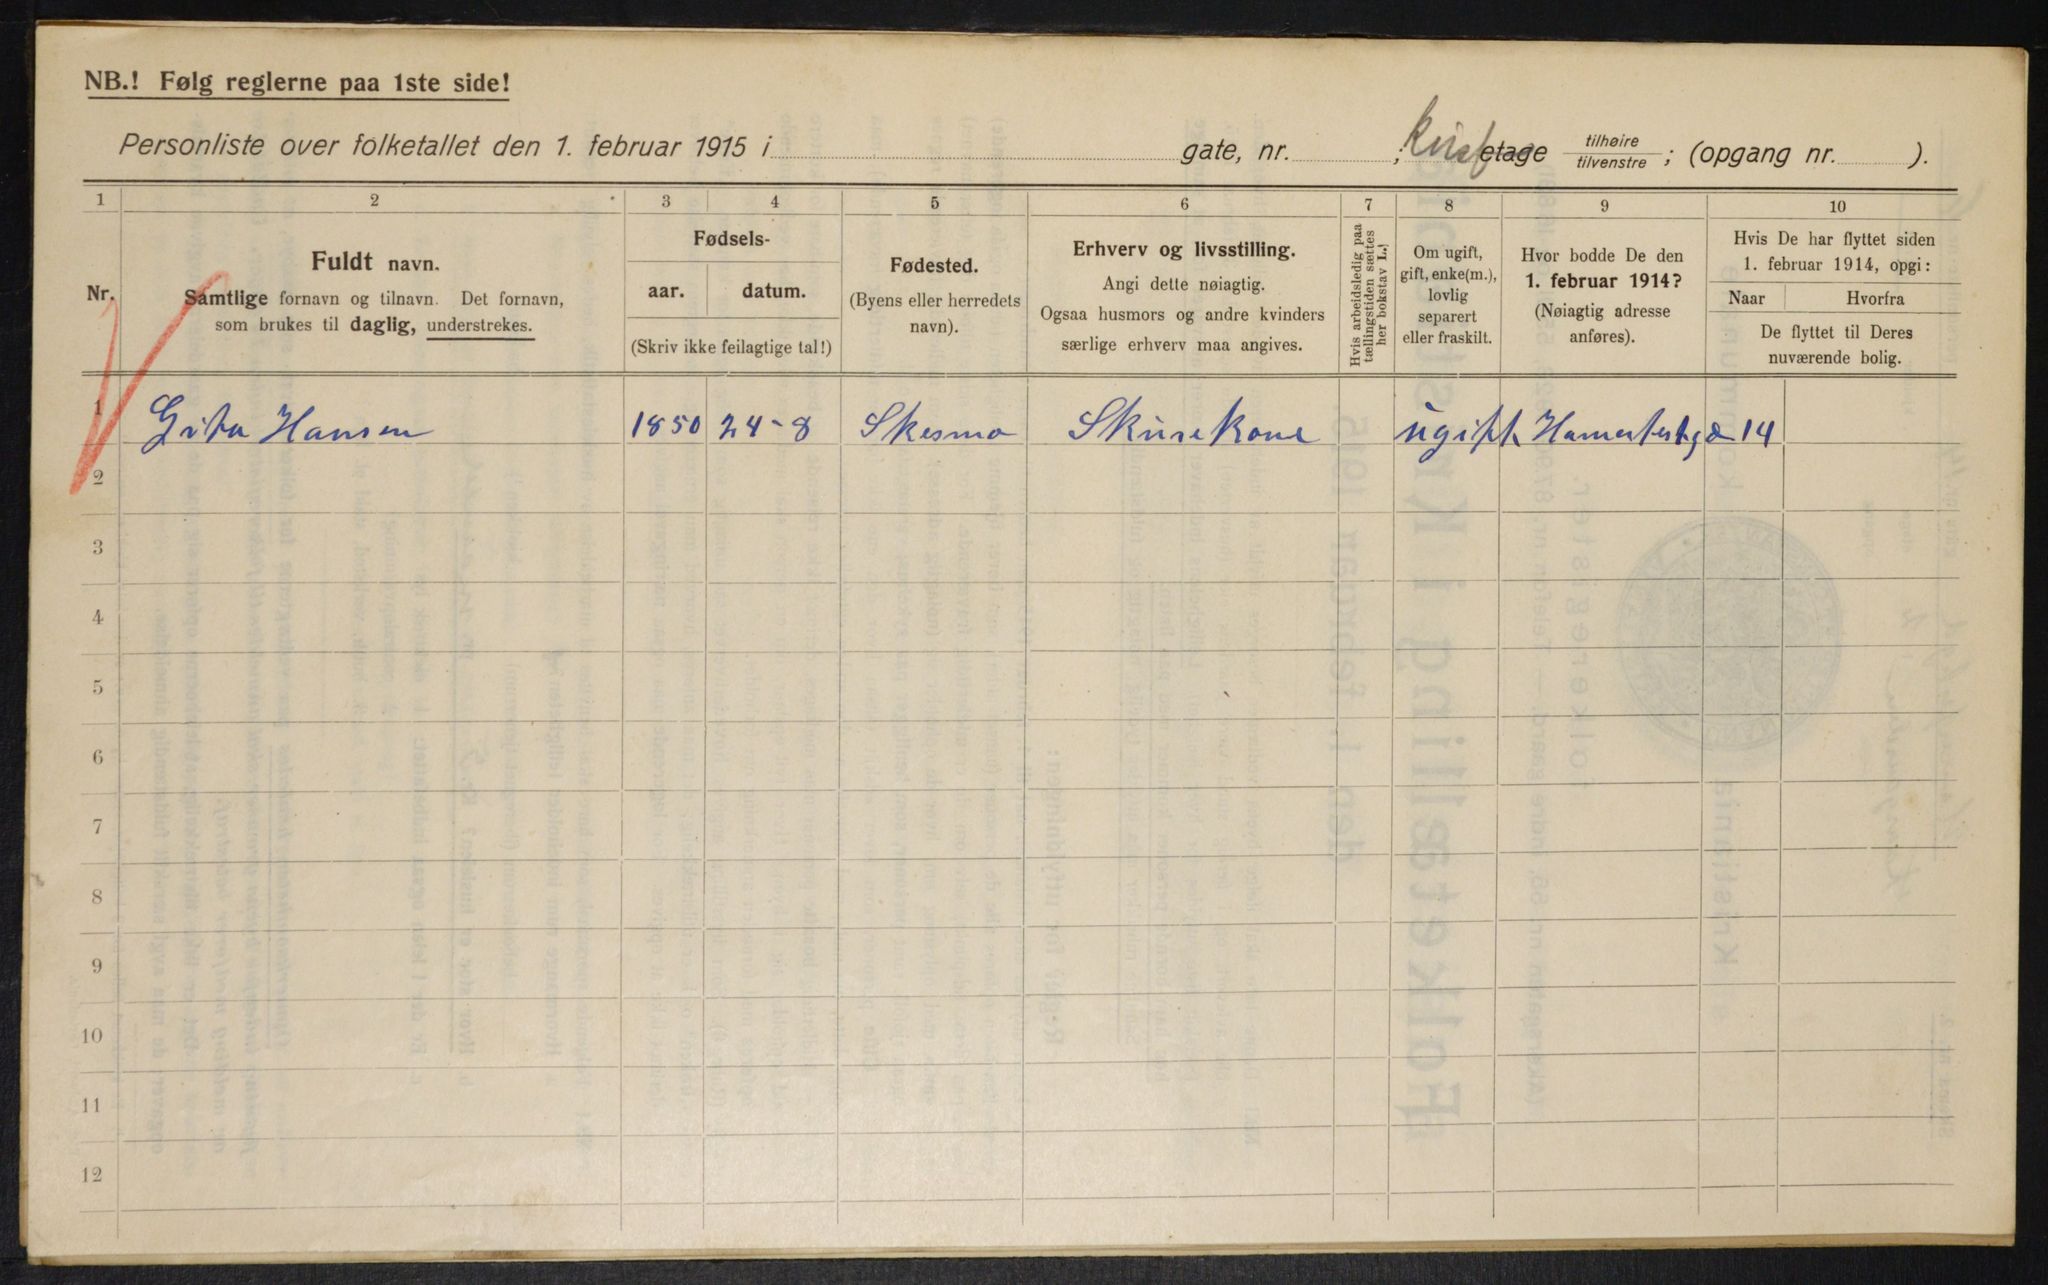 NB.! Følg reglerne paa 1ste side!
Personliste over folketallet den 1. februar 1915 i gate, nr. ; etage tilhøire tilvenstre ; (opgang nr. ).
1 2 3 4 5 6 7 8 9 10
Nr.
Fuldt navn.
Samtlige fornavn og tilnavn. Det fornavn,
som brukes til daglig, understrekes.
Fødsels-
aar. datum.
(Skriv ikke feilagtige tal!)
Fødested.
(Byens eller herredets
navn).
Erhverv og livsstilling.
Angi dette nøiagtig.
Ogsaa husmors og andre kvinders
særlige erhverv maa angives.
Hvis arbeidsledig paa
tællingstiden sættes
her bokstav L.!
Om ugift,
gift, enke(m.),
lovlig
separert
eller fraskilt.
Hvor bodde De den
1. februar 1914?
(Nøiagtig adresse
anføres).
Hvis De har flyttet siden
1. februar 1914, opgi:
Naar Hvorfra
De flyttet til Deres
nuværende bolig.
1 Hansen 1850 24-8 Skesmo Skurekone ugift 14
2
3
4
5
6
7
8
9
10
11
12